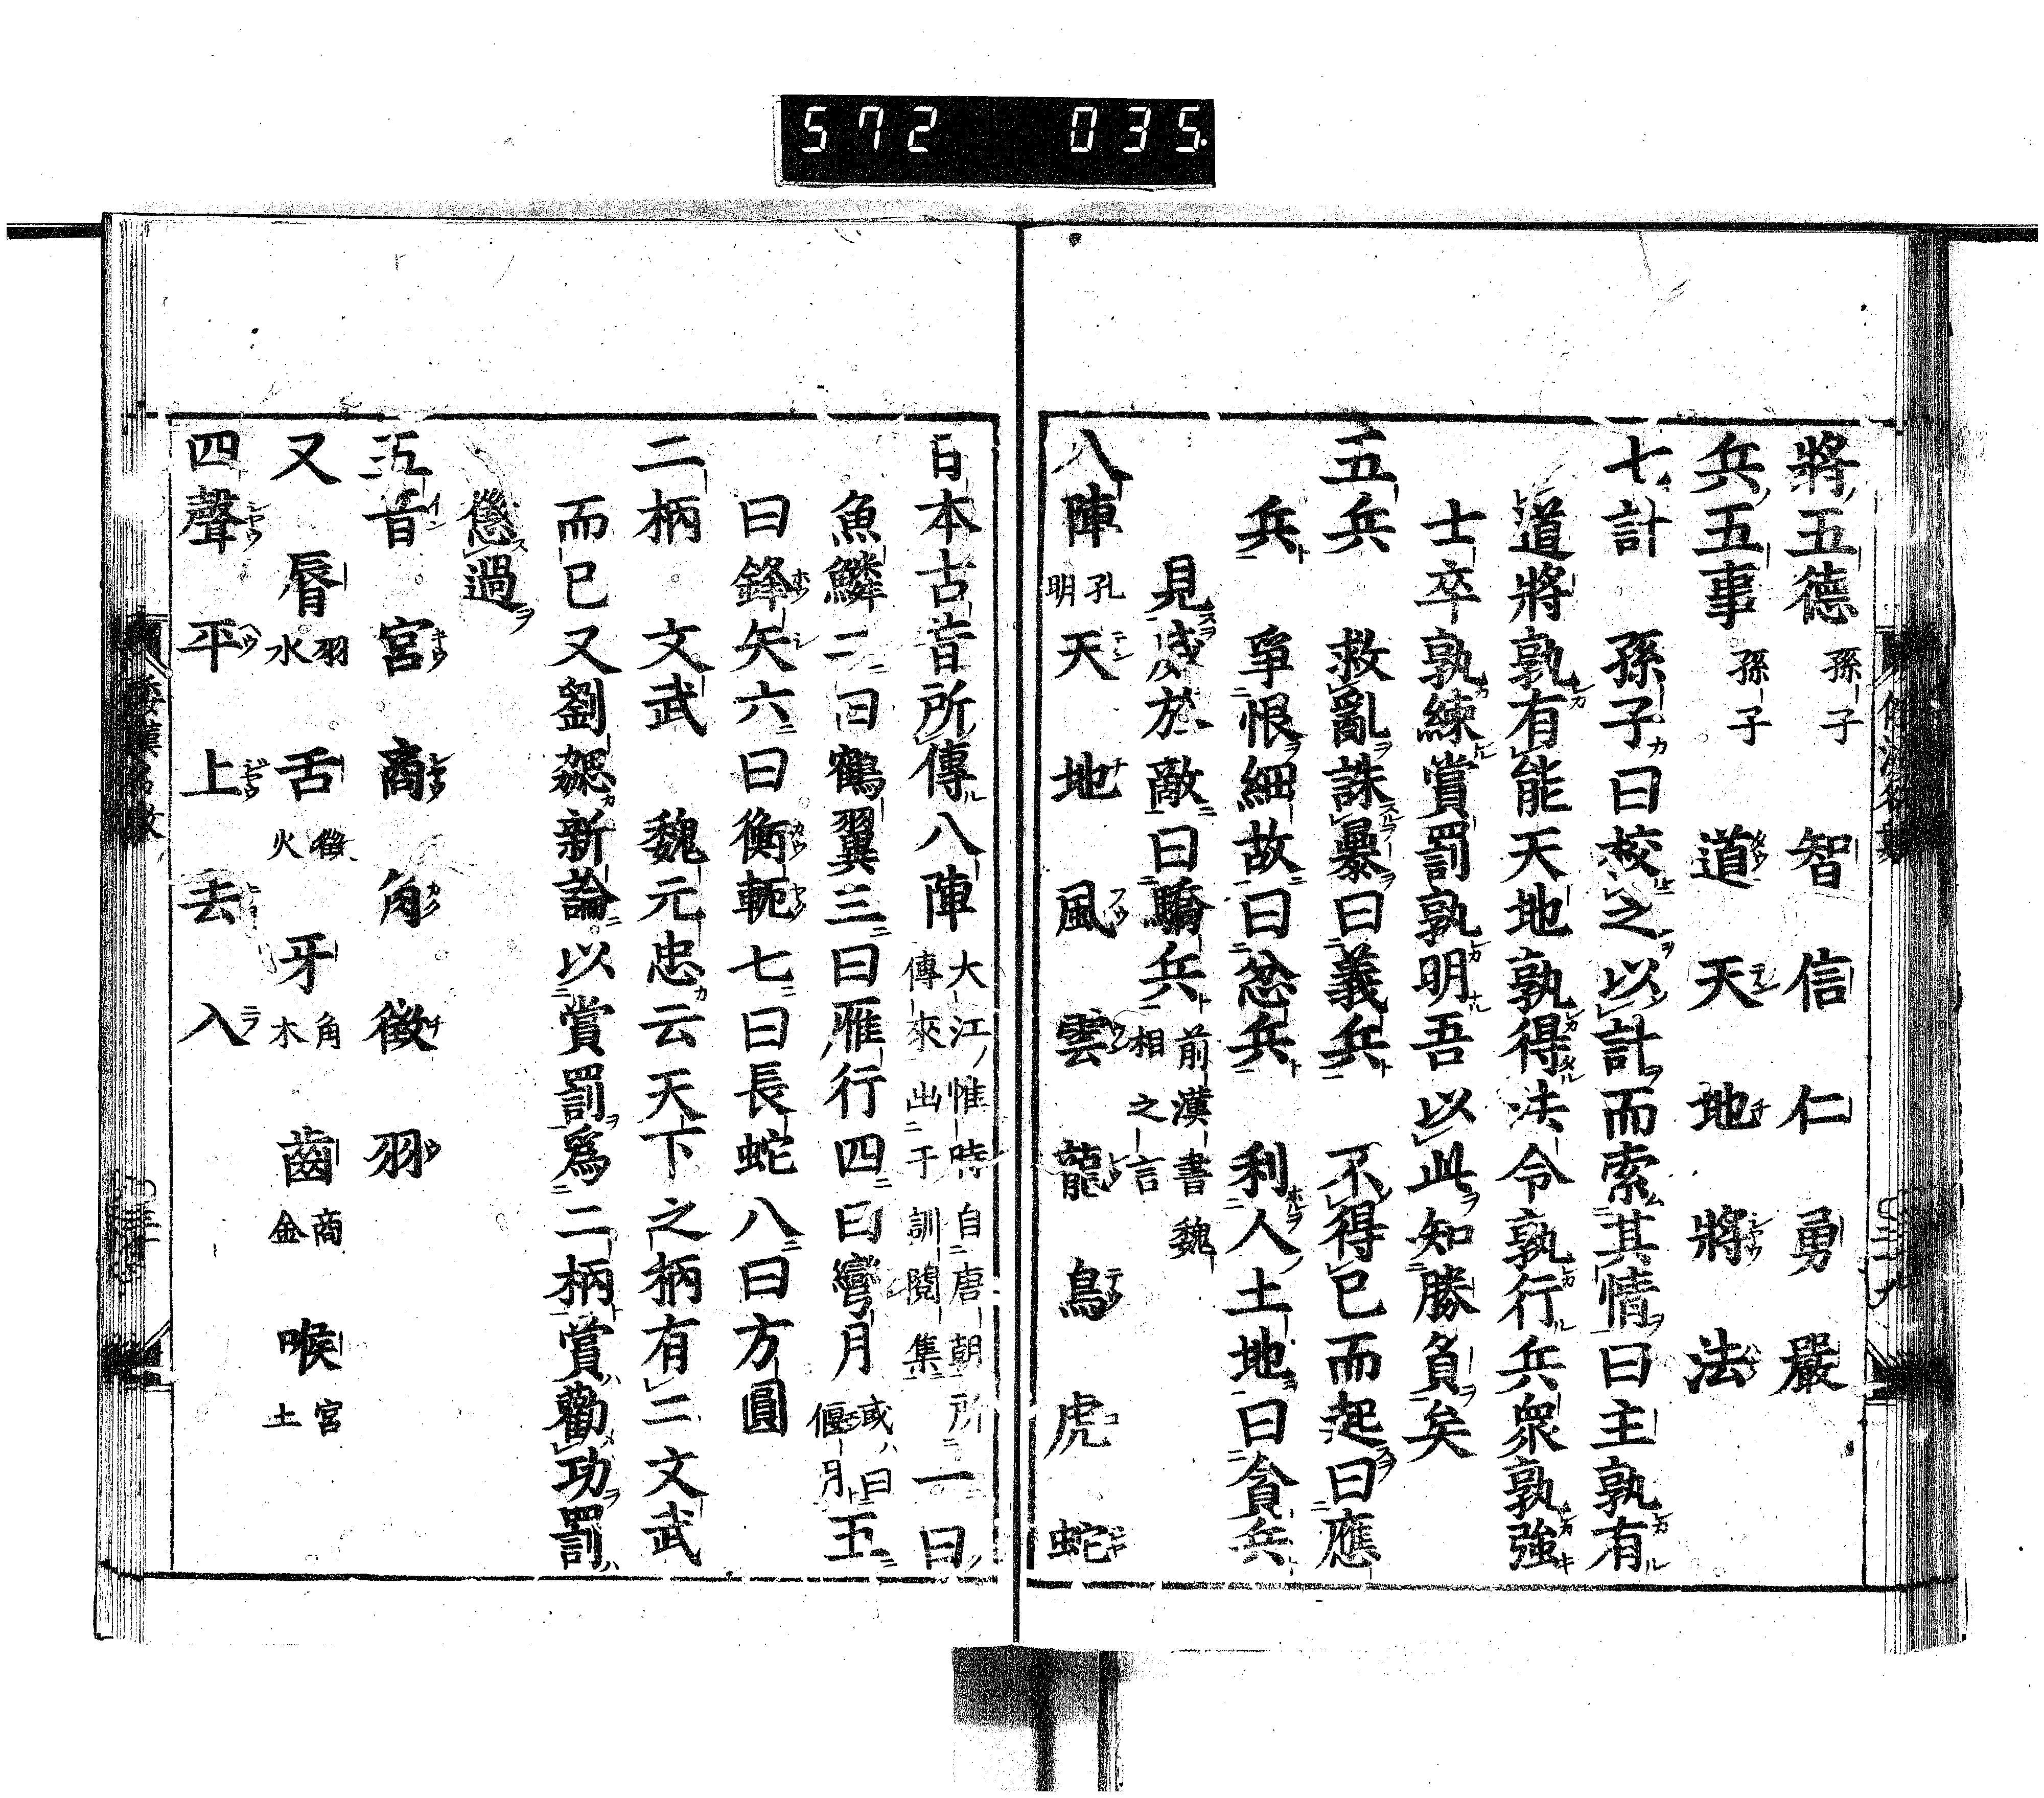 572 035
將五德 孫子 智信仁勇嚴
兵五事 孫子 道天地將法
七計 孫子曰校之以計而索其情曰主孰有
道將孰有能天地孰得法令孰行兵衆孰強
士卒孰練賞罰孰明吾以此知勝負矣
五兵 救亂誅暴曰義兵 不得已而起曰應
兵 爭恨細故曰忿兵 利人土地曰貪兵
見威於敵曰驕兵 前漢書魏相之言
八陣 孔明 天地風雲龍鳥虎蛇
日本古昔所傳八陣 大江惟時自唐朝所傳來出于訓閲集 一曰
魚鱗二曰鶴翼三曰雁行四曰彎月 或曰偃月 五
曰鋒矢六曰衡軛七曰長蛇八曰方圓
二柄 文武 魏元忠云天下之柄有二文武
而已又劉勰新論以賞罰爲二柄賞勸功罰
懲過
五音 宮商角徵羽
又 脣 羽水 舌 徵火 牙 角木 齒 商金 喉 宮土
四聲 平上去入